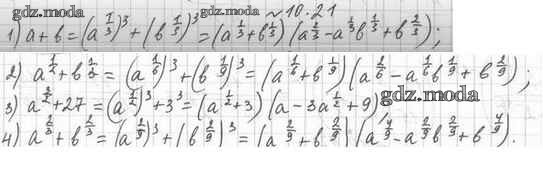 gdz.moda gdz.moda № 10.21
1) a + b = (a^{1/3})^3 + (b^{1/3})^3 = (a^{1/3} + b^{1/3}) (a^{2/3} - a^{1/3} b^{1/3} + b^{2/3});
2) a^{1/2} + b^{1/3} = (a^{1/6})^3 + (b^{1/9})^3 = (a^{1/6} + b^{1/9}) (a^{2/6} - a^{1/6} b^{1/9} + b^{2/9});
3) a^{3/2} + 27 = (a^{1/2})^3 + 3^3 = (a^{1/2} + 3) (a - 3a^{1/2} + 9) gdz.moda
4) a^{2/3} + b^{2/3} = (a^{2/9})^3 + (b^{2/9})^3 = (a^{2/9} + b^{2/9}) (a^{4/9} - a^{2/9} b^{2/9} + b^{4/9}).